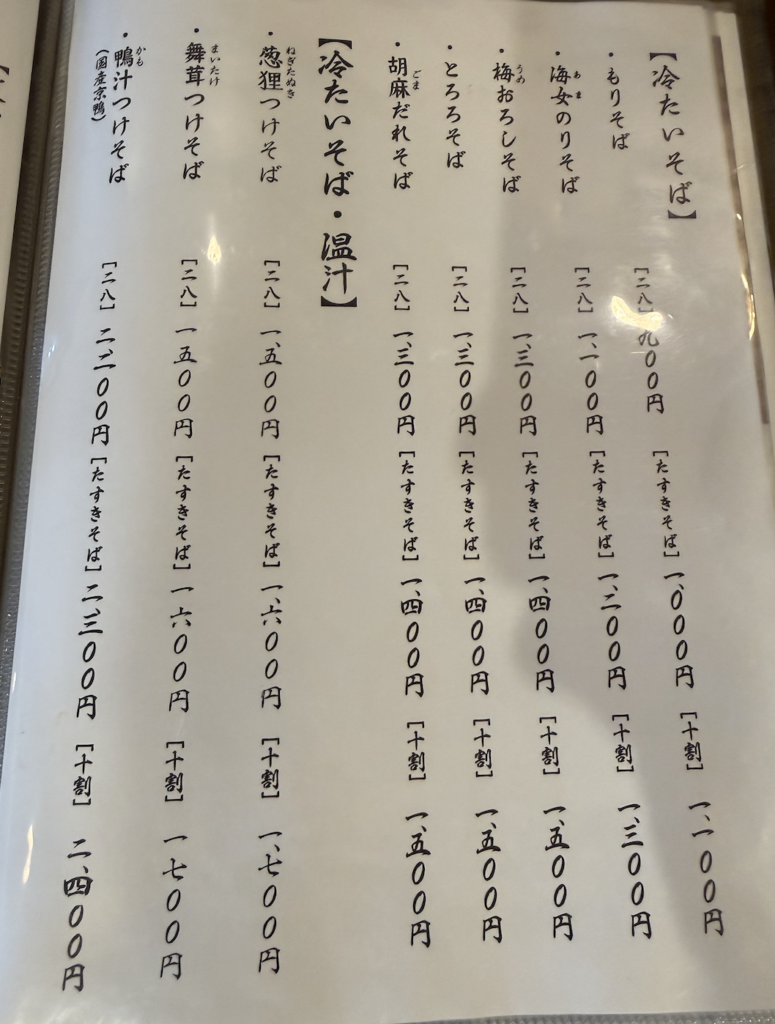 【冷たいそば】
・もりそば [二八] 九〇〇円 [たすきそば] 一、〇〇〇円 [十割] 一、一〇〇円
・海女のりそば [二八] 一、一〇〇円 [たすきそば] 一、二〇〇円 [十割] 一、三〇〇円
あま
・梅おろしそば [二八] 一、三〇〇円 [たすきそば] 一、四〇〇円 [十割] 一、五〇〇円
うめ
・とろろそば [二八] 一、三〇〇円 [たすきそば] 一、四〇〇円 [十割] 一、五〇〇円
・胡麻だれそば [二八] 一、三〇〇円 [たすきそば] 一、四〇〇円 [十割] 一、五〇〇円
ごま
【冷たいそば・温汁】
・葱狸つけそば [二八] 一、五〇〇円 [たすきそば] 一、六〇〇円 [十割] 一、七〇〇円
ねぎたぬき
・舞茸つけそば [二八] 一、五〇〇円 [たすきそば] 一、六〇〇円 [十割] 一、七〇〇円
まいたけ
・鴨汁つけそば [二八] 二、二〇〇円 [たすきそば] 二、三〇〇円 [十割] 二、四〇〇円
かも
（国産京鴨）